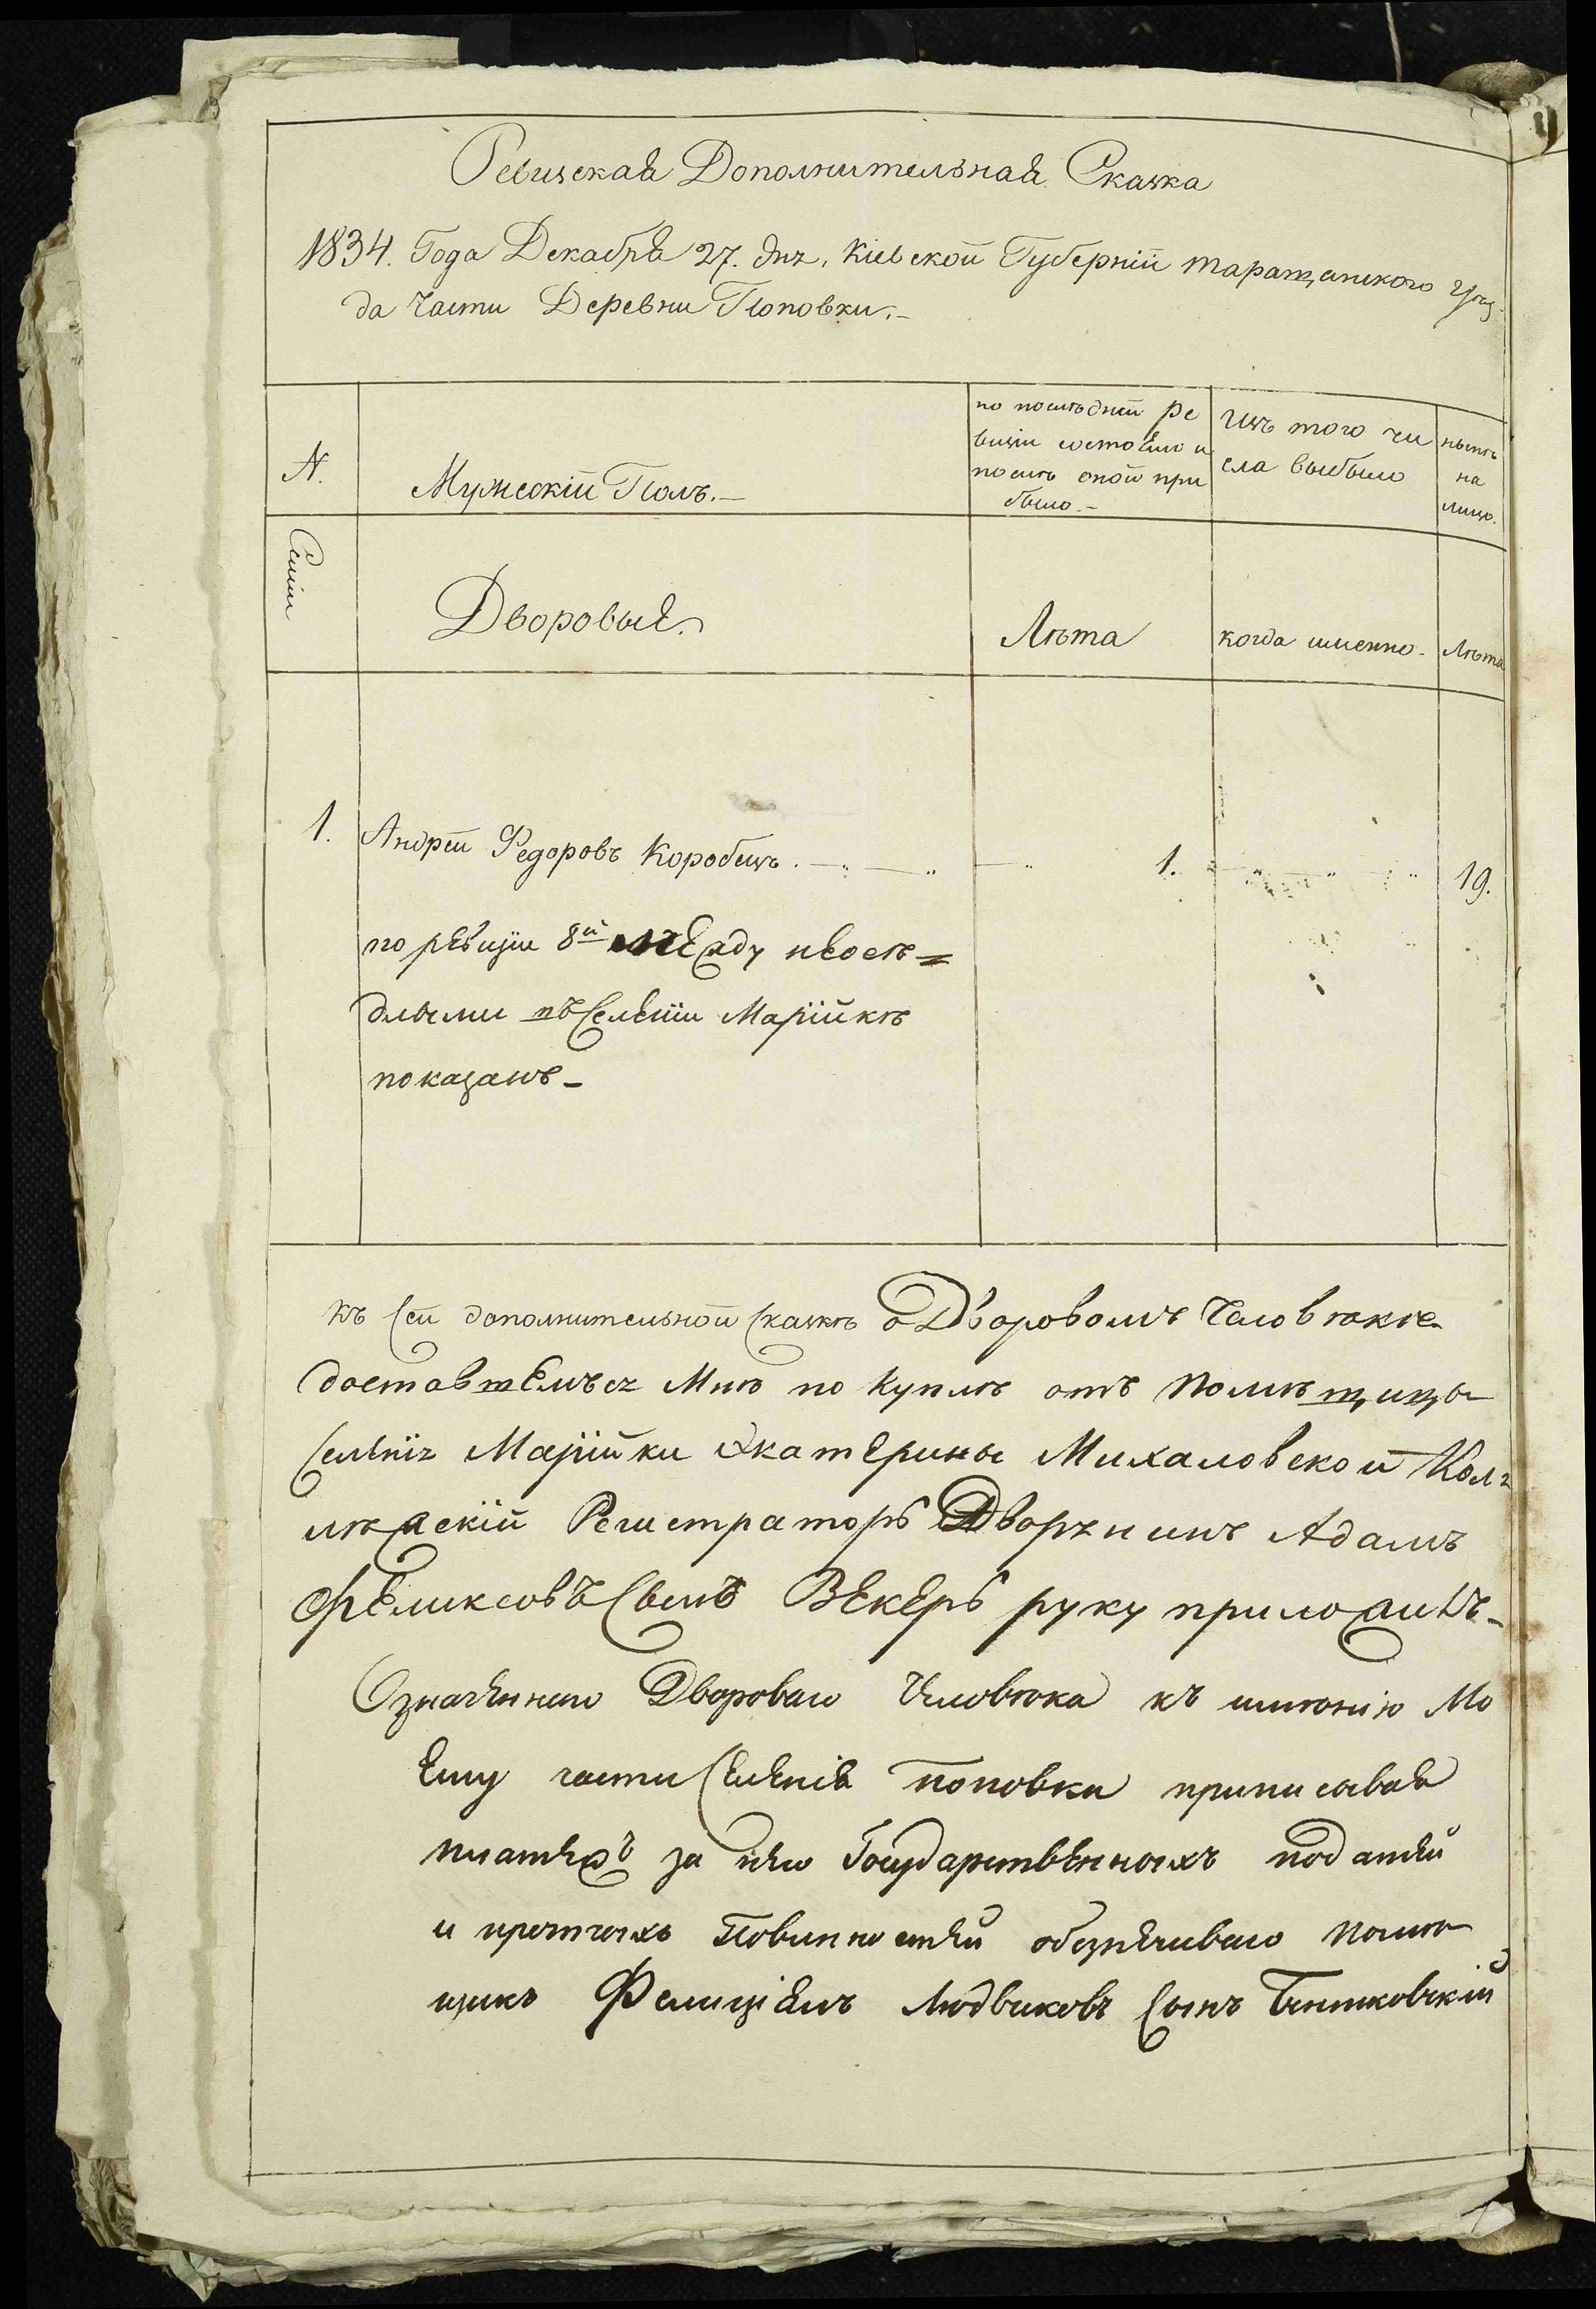 Ревизская Дополнительная Сказка
1834. Года Декабря 27. дня, Кіевской Губерніи таращанского уѣз-
да Части Деревни Поповки.-
N.
Мужескій Полъ.-
по послѣдней ре
визіи состояло и
послѣ оной при
было.-
Изъ того чи
сла выбыло
нынѣ
на
лицо.
Семіи
Дворовыя.
Лѣта
когда именно.
Лѣта
1. Андрей Федоровъ Коробецъ. 1. 19.
по ревизіи 8й между неосѣ=
длыми въ Селеніи Марійкѣ
показанъ-
къ сей дополнительной сказкѣ о Дворовомъ Человѣкѣ
доставшемъся Мнѣ по Куплѣ отъ Помѣщицы
Селенія Марійки Екатерины Михаловской Кол-
лежскій Регистраторъ Дворянинъ Адамъ
Феликсовъ Сынъ Векеръ руку приложилъ-
Означенного Дворового Человѣка къ имѣнію Мо
ему части Селенія Поповки приписывая
платежъ за него Государственныхъ податей
и протчихъ Повинностей обезпечиваю Помѣ
щикъ Фелиціянъ Людвиковъ Сынъ